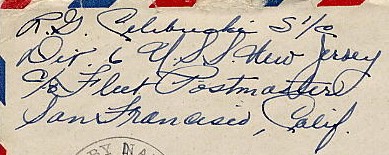 R.G. Celebucki S 1/c
Div. 6 U.S.S New Jersey
c/o Fleet Postmaster
San Francisco, Calif.
BY NA